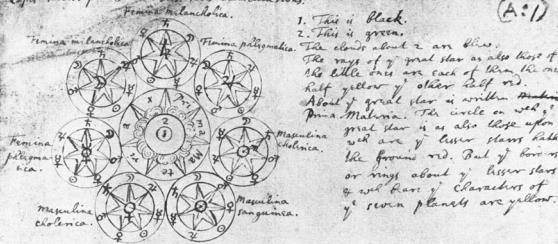 Femina melancholica.
Femina melancholica
Femina phlegmatica.
Femina
phlegma-
tica.
Masculina
cholerica.
Masculina
cholerica.
Masculina
sanguinea.
Prima Materia
x
2
1
(A:1)
1. This is black.
2. This is green.
The clouds about 2 are blew.
The rays of yᵉ great star as also those of
the little ones are each of them the one
half yellow yᵉ other half red.
About yᵉ great star is written
Prima. Materia. The circle on wᶜʰ yᵉ
great star is as also those upon
wᶜʰ are yᵉ lesser starrs hath
the ground red. But yᵉ borders
or rings about yᵉ lesser starrs
& wᶜʰ bears yᵉ characters of
yᵉ seven planets are yellow.